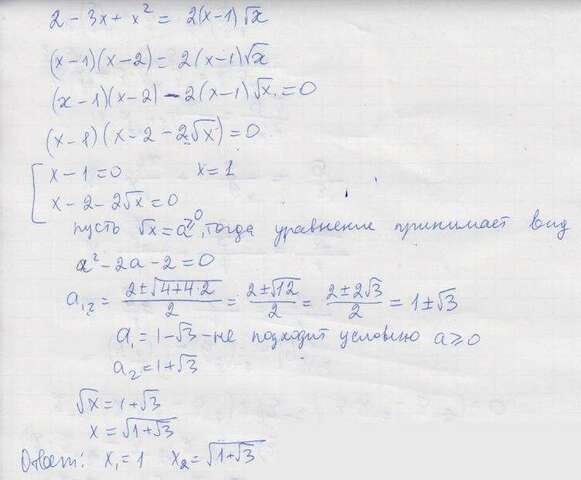 2 - 3x + x² = 2(x-1)√x
(x-1)(x-2) = 2(x-1)√x
(x-1)(x-2) - 2(x-1)√x = 0
(x-1)(x-2-2√x) = 0
x-1=0 x=1
x-2-2√x=0
пусть √x = a ≥ 0, тогда уравнение принимает вид
a² - 2a - 2 = 0
a₁,₂ = (2±√(4+4·2))/2 = (2±√12)/2 = (2±2√3)/2 = 1±√3
a₁ = 1-√3 - не подходит условию a≥0
a₂ = 1+√3
√x = 1+√3
x = √(1+√3)
Ответ: x₁=1 x₂=√(1+√3)